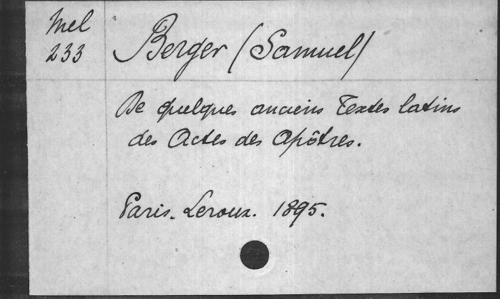 Mel
233
Berger (Samuel)
De quelques anciens Textes latins
des Actes des Apôtres.
Paris. Leroux. 1895.